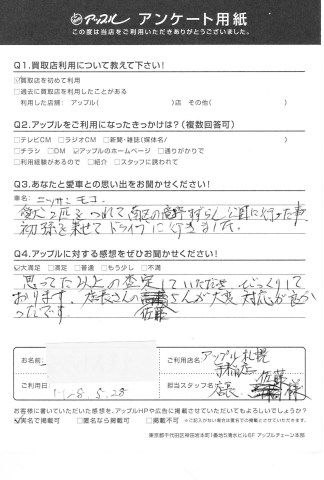 アップル アンケート用紙
この度は当店をご利用いただきありがとうございました。
Q1.買取店利用について教えて下さい!
☑買取店を初めて利用
□過去に買取店を利用したことがある
利用した店舗: アップル( )店 その他( )
Q2.アップルをご利用になったきっかけは?(複数回答可)
□テレビCM □ラジオCM □新聞・雑誌(媒体名/ )
□チラシ □DM ☑アップルのホームページ □通りがかりで
□利用経験があるので □紹介 □スタッフに誘われて
Q3.あなたと愛車との思い出をお聞かせください!
車名: ニッサン モコ
愛犬2匹をつれて南区の 公園に行った事
初孫を乗せてドライブに行きました。
Q4.アップルに対する感想をぜひお聞かせください!
☑大満足 □満足 □普通 □もう少し □不満
思ってた以上の査定していただき びっくりして
おります。店長さんの 佐藤さんが大変対応が良か
ったです。
お名前
ご利用店名 アップル札幌
手稲店
ご利用日 H28.5.28
担当スタッフ名 店長 佐藤 様
お客様に書いていただいた感想を、アップルHPや広告に掲載させていただいてもよろしいでしょうか?
☑実名で掲載可 □匿名なら掲載可 □掲載不可 ※ご記入がない場合は匿名での掲載とさせていただきます。
東京都千代田区神田岩本町1番地5清水ビル6F アップルチェーン本部